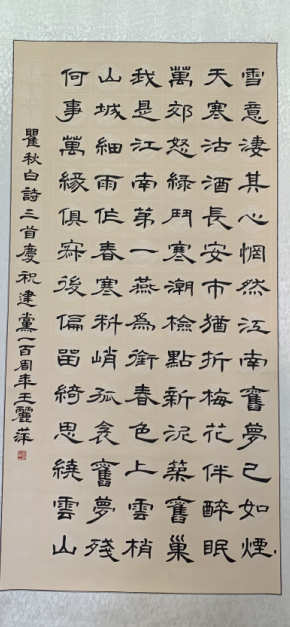 雪意淒其心惘然江南舊夢已如煙
天寒沽酒長安市猶折梅花伴醉眠
萬郊怒綠鬥寒潮檢點新泥築舊巢
我是江南第一燕為銜春色上雲梢
山城細雨作春寒料峭孤衾舊夢殘
何事萬緣俱寂後偏留綺思繞雲山
瞿秋白詩三首慶祝建黨一百周年王麗萍